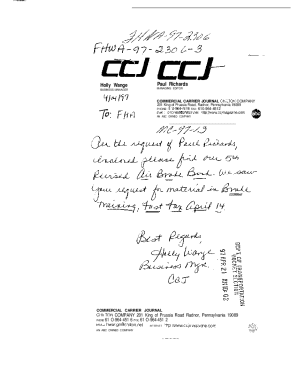 FHWA-97-2306
FHWA-97-2306-3
CCJ CCJ
Holly Wange
BUSINESS MANAGER
Paul Richards
MANAGING EDITOR
4/14/97
COMMERCIAL CARRIER JOURNAL CHILTON COMPANY
201 King of Prussia Road Radnor, Pennsylvania 19089
abc
AN ABC COMPANY
To: FHWA
MC-97-13
Per the request of Paul Richards,
enclosed please find our 5th
Revised Air Brake Book. We saw
your request for material in Brake
Training, fast fax April 14.
Best Regards,
Holly Wange
Business Mgr.
CCJ
DEPT OF TRANSPORTATION
DOCKET SECTION
COMMERCIAL CARRIER JOURNAL
CHILTON COMPANY 201 King of Prussia Road Radnor, Pennsylvania 19089
AN ABC COMPANY